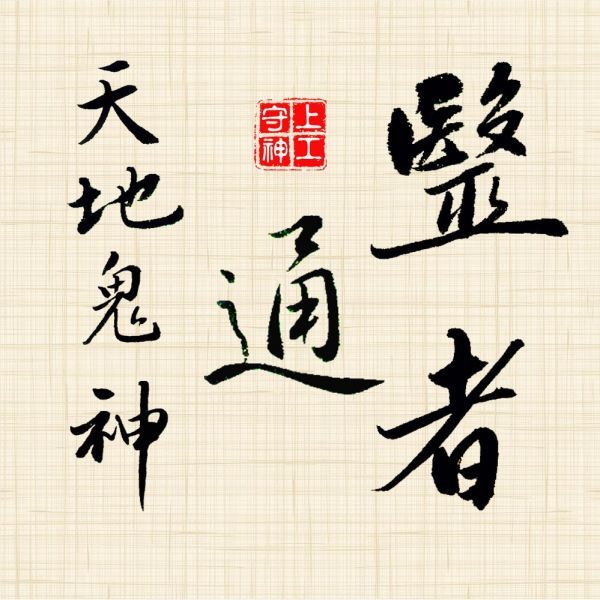 毉者
上工
守神
通
天地鬼神